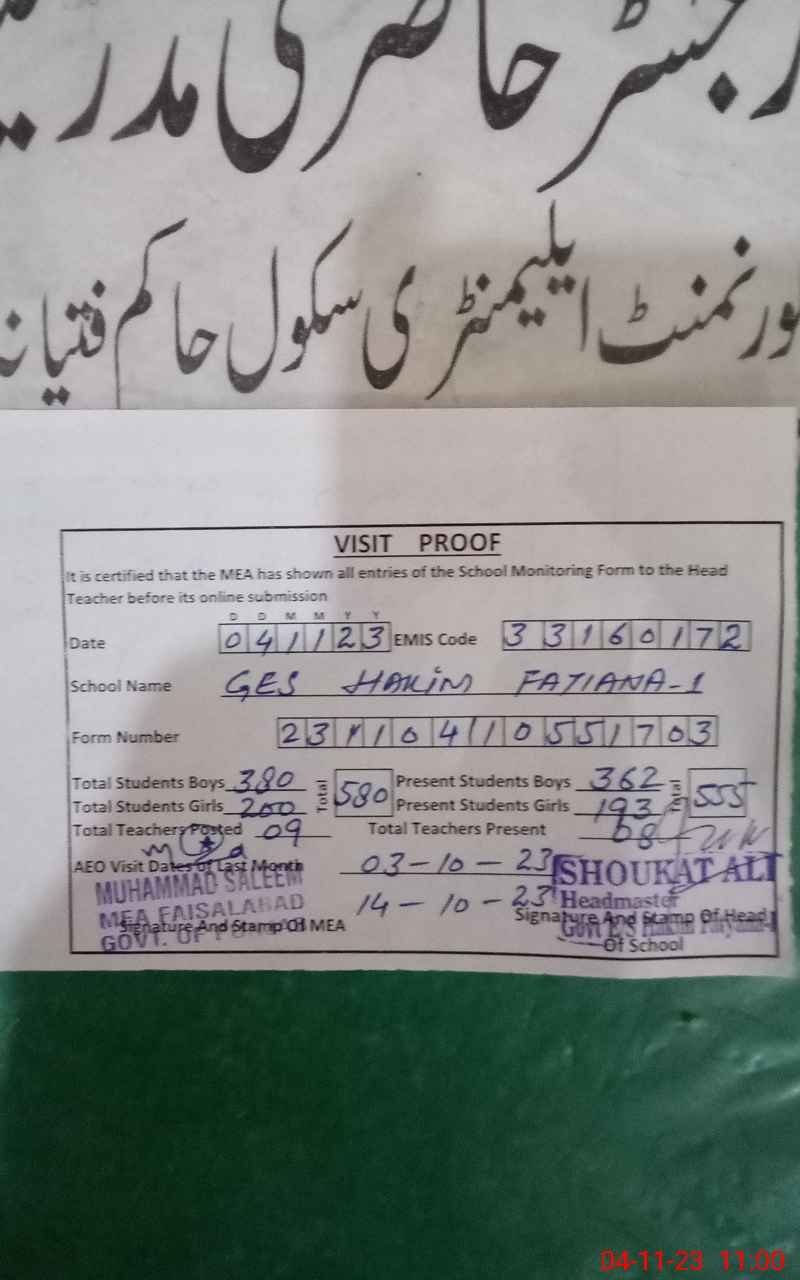 رجسٹر حاضری مدرسین
گورنمنٹ ایلیمنٹری سکول حاکم فتیانہ
VISIT PROOF
It is certified that the MEA has shown all entries of the School Monitoring Form to the Head
Teacher before its online submission
D D M M Y Y
Date 041123 EMIS Code 33160172
School Name GES HAKIM FATIANA-1
Form Number 23110410551703
Total Students Boys 380 Total 580 Present Students Boys 362 Total 555
Total Students Girls 200 Present Students Girls 193
Total Teachers Posted 09 Total Teachers Present 08
AEO Visit Dates of Last Month 03-10-23
14-10-23
MUHAMMAD SALEEM
MEA FAISALABAD
GOVT. OF
Signature And Stamp Of MEA
SHOUKAT ALI
Headmaster
Signature And Stamp Of Head
Of School
04-11-23 11:00